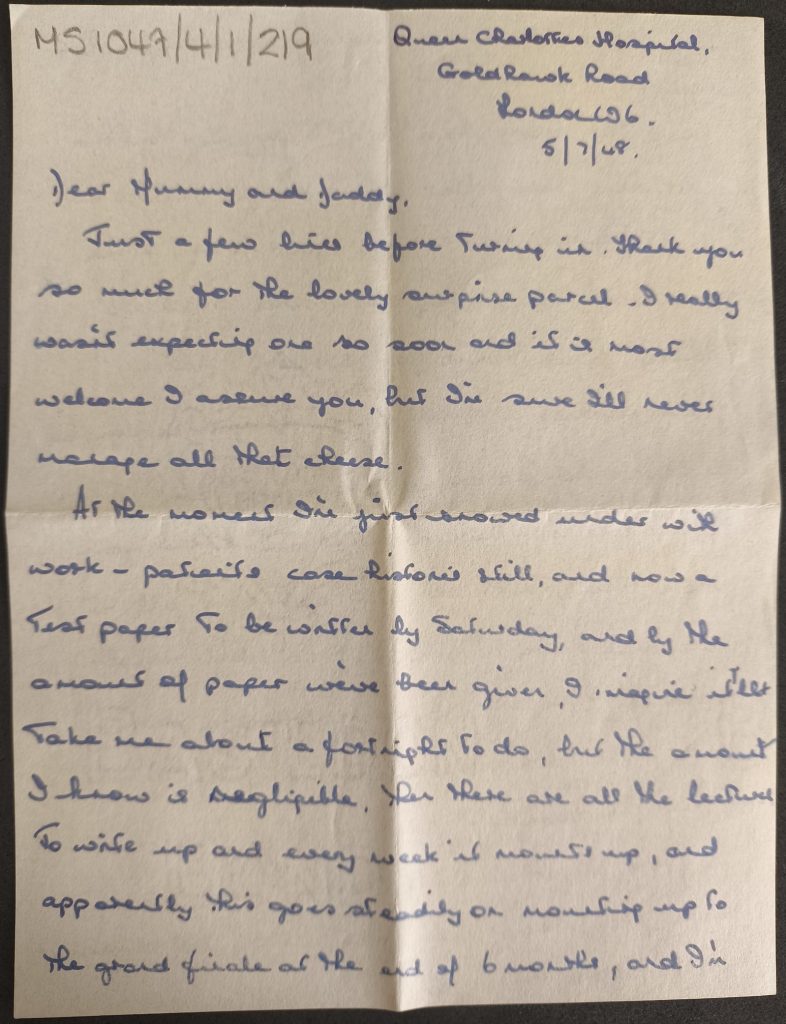 MS1047/4/1/219
Queen Charlottes Hospital,
Goldhawk Road
London W6.
5/7/48.
Dear Mummy and Daddy,
Just a few lines before turning in. Thank you
so much for the lovely surprise parcel. I really
wasn't expecting one so soon and it is most
welcome I assure you, but I'm sure I'll never
manage all that cheese.
At the moment I'm just snowed under with
work - patients case histories still, and now a
Test paper to be written by Saturday, and by the
amount of paper we've been given, I imagine it'll
take me about a fortnight to do, but the amount
I know is negligible. Then there are all the lectures
to write up and every week it mounts up, and
apparently this goes steadily on mounting up to
the grand finale at the end of 6 months, and I'm